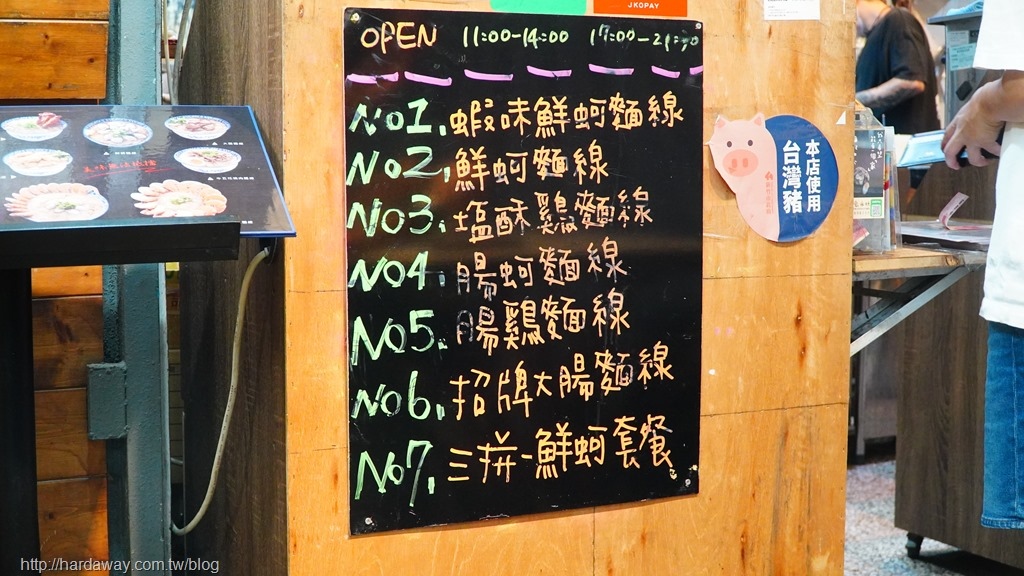 JKOPAY
OPEN 11:00-14:00 17:00-21:00
No1. 蝦味鮮蚵麵線
No2. 鮮蚵麵線
No3. 塩酥鷄麵線
No4. 腸蚵麵線
No5. 腸鷄麵線
No6. 招牌大腸麵線
No7. 三拼-鮮蚵套餐
本店使用
台灣豬
http://hardaway.com.tw/blog